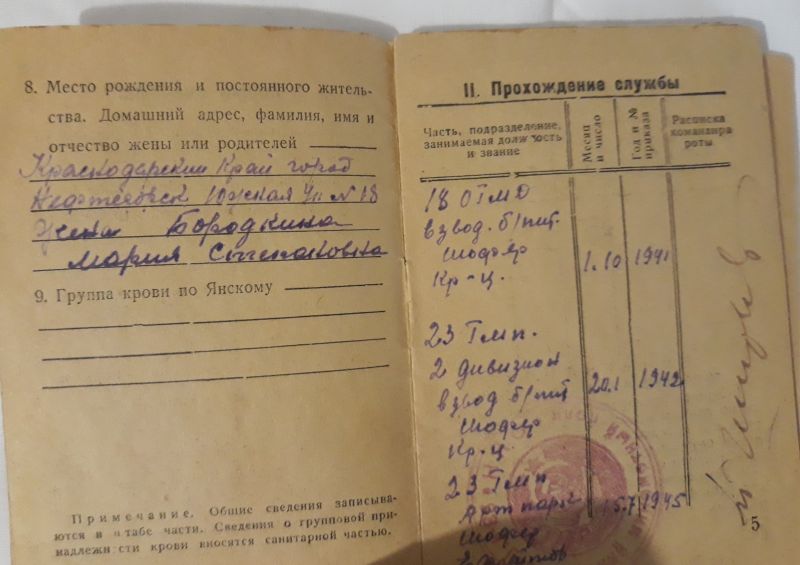 8. Место рождения и постоянного житель-
ства. Домашний адрес, фамилия, имя и
отчество жены или родителей
Краснодарский Край город
Нефтегорск Южная Ул № 18
Жена Бородкина
Мария Степановна
9. Группа крови по Янскому
Примечание. Общие сведения записыва-
ются в штабе части. Сведения о групповой при-
надлежности крови вносятся санитарной частью.
II. Прохождение службы
Часть, подразделение, занимаемая должность и звание
Месяц и число
Год и № приказа
Расписка командира роты
18 ОТМД
взвод. б/пит.
Шофер
Кр-ц. 1.10 1941
23 Тмп.
2 дивизион
взвод б/пит 20.1 1942
Шофер
Кр-ц
23 Тмп
Арт парк 15.7 1945
Шофер
5